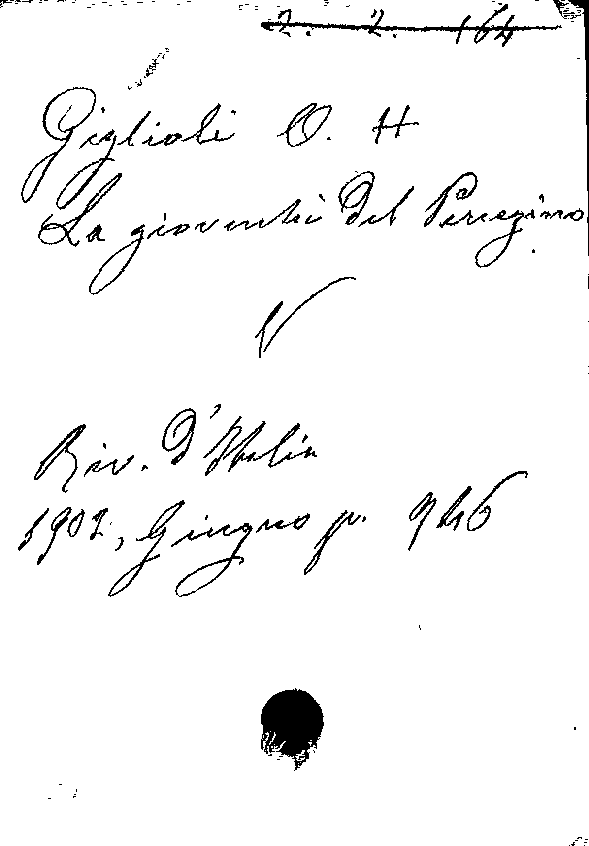 2. 2. 164
Giglioli O. H
La gioventù del Peregino
V
Riv. d'Italia
1902, Giugno p. 946